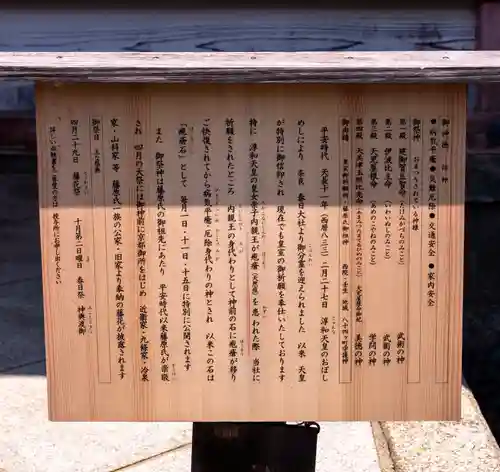 御神徳・御神符
●病気平癒 ●災難厄除 ●交通安全 ●家内安全
御祭神 おまつりされている神様
第一殿 健御賀豆智命(たけみかづちのみこと) 武術の神
第二殿 伊波比主命(いわいぬしのみこと) 武術の神
第三殿 天児屋根命(あめのこやねのみこと) 学問の神
第四殿 美徳の神
平安時代 天長十一年(西暦八三三)二月二十七日 淳和天皇のおぼし
めしにより 奈良 春日大社より御分霊を迎えられました 以来 天皇
が特別に御信仰され 現在でも皇室の御祈願を奉仕いたしております
特に 淳和天皇の皇太子 内親王が疱瘡(天然痘)を患われた際 当社に
祈願をされたところ 内親王の身代わりとして神前の石に疱瘡が移り
ご快復されてから病気平癒・厄除身代わりの神とされ 以来この石は
「疱瘡石」として 毎月一日・十一日・十五日に特別に公開されます
また 御祭神は藤原氏の御祖先にあたり 平安時代以来藤原氏が崇敬
され 四月の大祭には御神前に京都御所をはじめ 近衛家・九條家・冷泉
家・山科家 等 藤原氏一族の公家・旧家より奉納の藤花が披露されます
御祭日 主な祭典
四月二十九日 藤花祭 十月第二日曜日 春日祭 神輿渡御